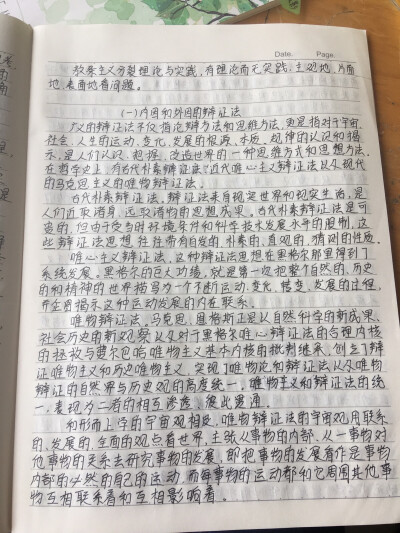 Date.    Page.
教条主义分裂理论与实践,有理论而无实践,主观地、片面
地、表面地看问题。
(一)内因和外因的辩证法
广义的辩证法不仅指论辩方法和思维方法,更是指对于宇宙、
社会、人生的运动、变化、发展的根源、本质、规律的认识和揭
示,是人们认识、把握、改造世界的一种思维方式和思想方法。
在哲学史上,有古代朴素辩证法、近代唯心主义辩证法以及现代
的马克思主义的唯物辩证法。
古代朴素辩证法,辩证法来自现实世界和现实生活,是
人们近取诸身、远取诸物的思想成果。古代朴素辩证法是可
贵的,但由于受当时环境条件和科学技术发展水平的限制,这
些辩证法思想往往带有自发的、朴素的、直观的、猜测的性质。
唯心主义辩证法,这种辩证法思想在黑格尔那里得到了
系统发展。黑格尔的巨大功绩,就是第一次把整个自然的、历史
的和精神的世界描写为一个不断运动、变化、转变、发展的过程,
并企图揭示这种运动发展的内在联系。
唯物辩证法,马克思、恩格斯正是以自然科学的新成果、
社会历史的新观察以及对于黑格尔唯心辩证法的合理内核
的拯救与费尔巴哈唯物主义基本内核的批判继承,创立了辩证
唯物主义和历史唯物主义,实现了唯物论和辩证法以及唯物
辩证的自然界与历史观的高度统一。唯物主义和辩证法的统
一,表现为二者的相互渗透、彼此贯通。
和形而上学的宇宙观相反,唯物辩证法的宇宙观用联系
的、发展的、全面的观点看世界,主张从事物的内部、从一事物对
他事物的关系去研究事物的发展,即把事物的发展看作是事物
内部的必然的自己的运动,而每事物的运动都和它周围其他事
物互相联系着和互相影响着。